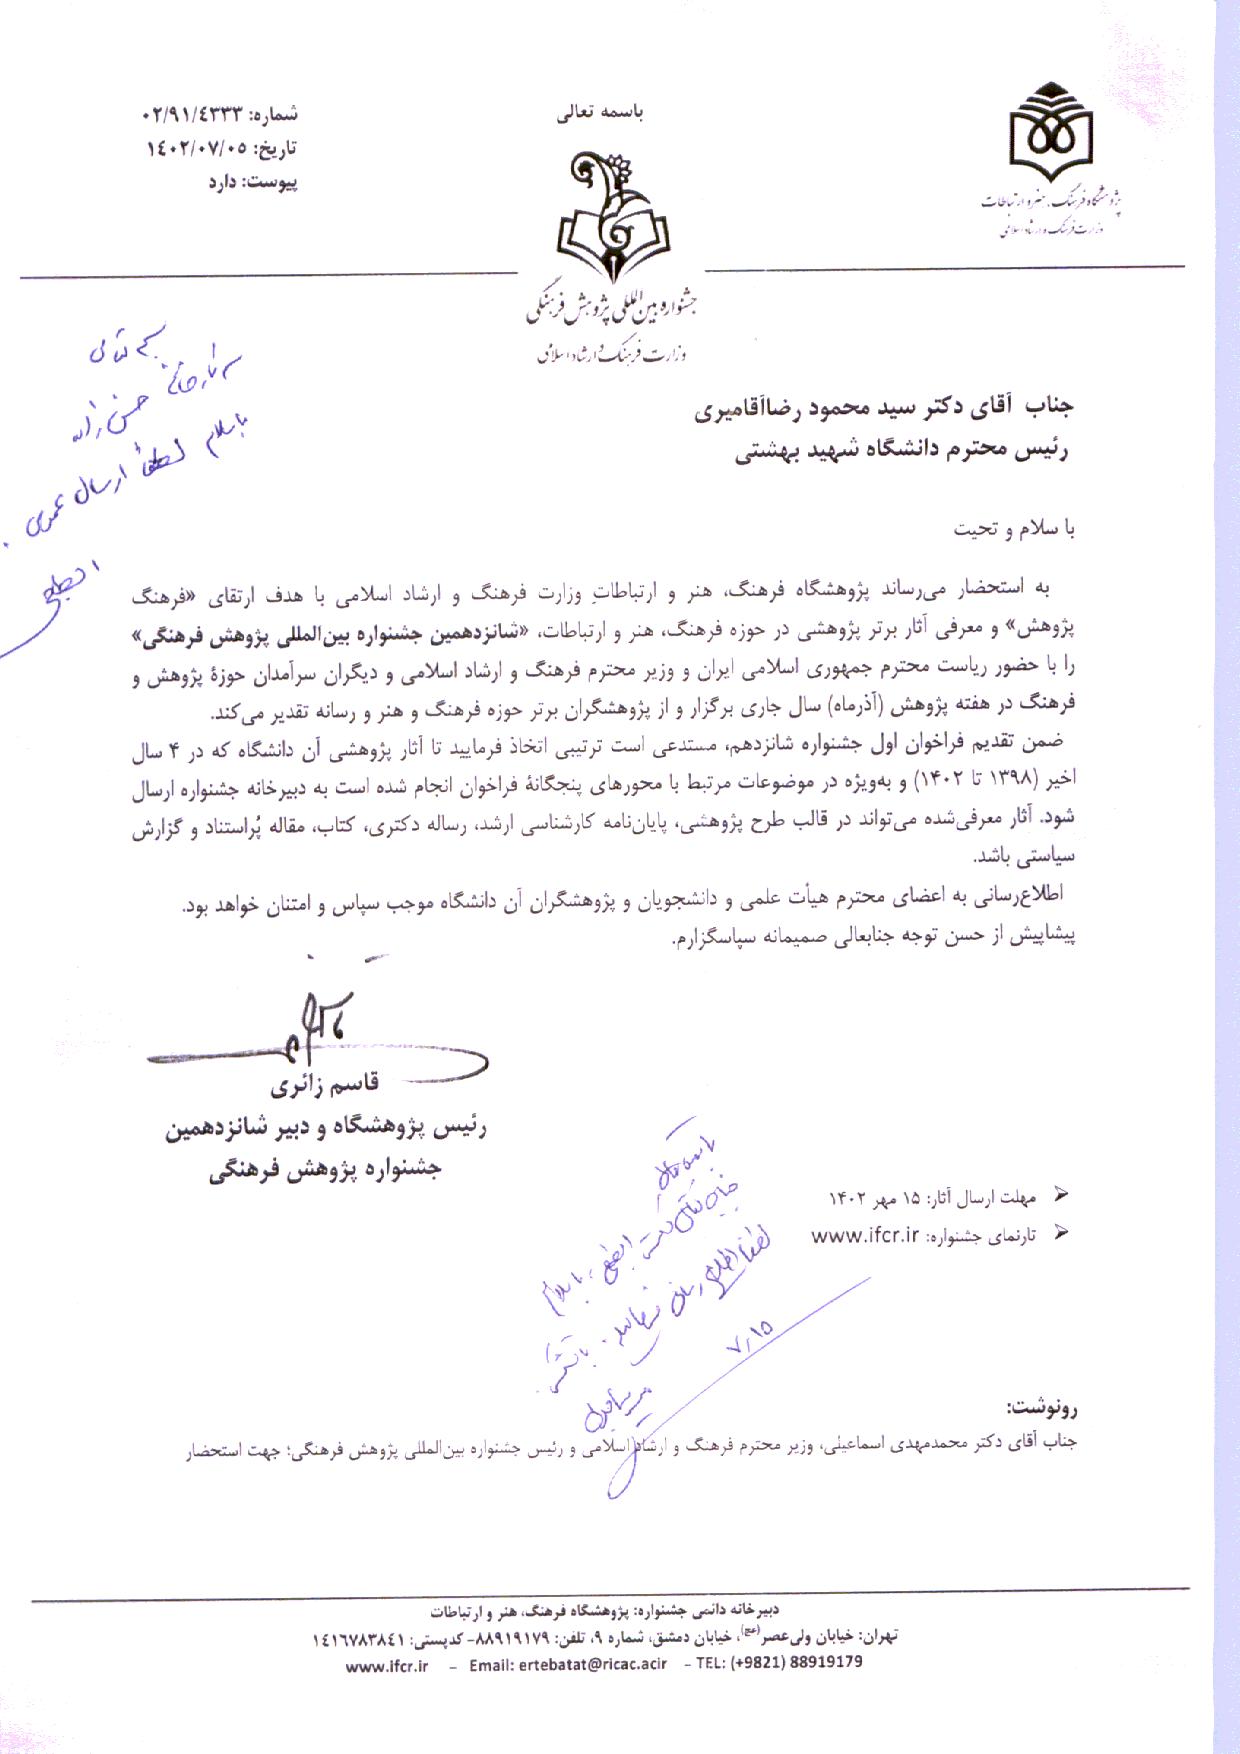 باسمه تعالی
شماره: ۰۲/۹۱/٤۳۳۳
تاریخ: ۱٤۰۲/۰۷/۰۵
پیوست: دارد
پژوهشگاه فرهنگ، هنر و ارتباطات
وزارت فرهنگ و ارشاد اسلامی
جشنواره بین‌المللی پژوهش فرهنگی
وزارت فرهنگ و ارشاد اسلامی
باسلام لطفاً ارسال عمومی
جناب آقای دکتر سید محمود رضاآقامیری
رئیس محترم دانشگاه شهید بهشتی
با سلام و تحیت
به استحضار می‌رساند پژوهشگاه فرهنگ، هنر و ارتباطاتِ وزارت فرهنگ و ارشاد اسلامی با هدف ارتقای «فرهنگ
پژوهش» و معرفی آثار برتر پژوهشی در حوزه فرهنگ، هنر و ارتباطات، «شانزدهمین جشنواره بین‌المللی پژوهش فرهنگی»
را با حضور ریاست محترم جمهوری اسلامی ایران و وزیر محترم فرهنگ و ارشاد اسلامی و دیگران سرآمدان حوزهٔ پژوهش و
فرهنگ در هفته پژوهش (آذرماه) سال جاری برگزار و از پژوهشگران برتر حوزه فرهنگ و هنر و رسانه تقدیر می‌کند.
ضمن تقدیم فراخوان اول جشنواره شانزدهم، مستدعی است ترتیبی اتخاذ فرمایید تا آثار پژوهشی آن دانشگاه که در ۴ سال
اخیر (۱۳۹۸ تا ۱۴۰۲) و به‌ویژه در موضوعات مرتبط با محورهای پنجگانهٔ فراخوان انجام شده است به دبیرخانه جشنواره ارسال
شود. آثار معرفی‌شده می‌تواند در قالب طرح پژوهشی، پایان‌نامه کارشناسی ارشد، رساله دکتری، کتاب، مقاله پُراستناد و گزارش
سیاستی باشد.
اطلاع‌رسانی به اعضای محترم هیأت علمی و دانشجویان و پژوهشگران آن دانشگاه موجب سپاس و امتنان خواهد بود.
پیشاپیش از حسن توجه جنابعالی صمیمانه سپاسگزارم.
قاسم زائری
رئیس پژوهشگاه و دبیر شانزدهمین
جشنواره پژوهش فرهنگی
➢ مهلت ارسال آثار: ۱۵ مهر ۱۴۰۲
➢ تارنمای جشنواره: www.ifcr.ir
باسمه تعالی
لطفا اطلاع رسانی فرمایید. با تشکر
۷/۱۵
رونوشت:
جناب آقای دکتر محمدمهدی اسماعیلی، وزیر محترم فرهنگ و ارشاد اسلامی و رئیس جشنواره بین‌المللی پژوهش فرهنگی؛ جهت استحضار
دبیرخانه دائمی جشنواره: پژوهشگاه فرهنگ، هنر و ارتباطات
تهران: خیابان ولی‌عصر(عج)، خیابان دمشق، شماره ۹، تلفن: ۸۸۹۱۹۱۷۹- کدپستی: ۱٤۱٦۷۸۳۸٤۱
www.ifcr.ir – Email: ertebatat@ricac.acir – TEL: (+9821) 88919179